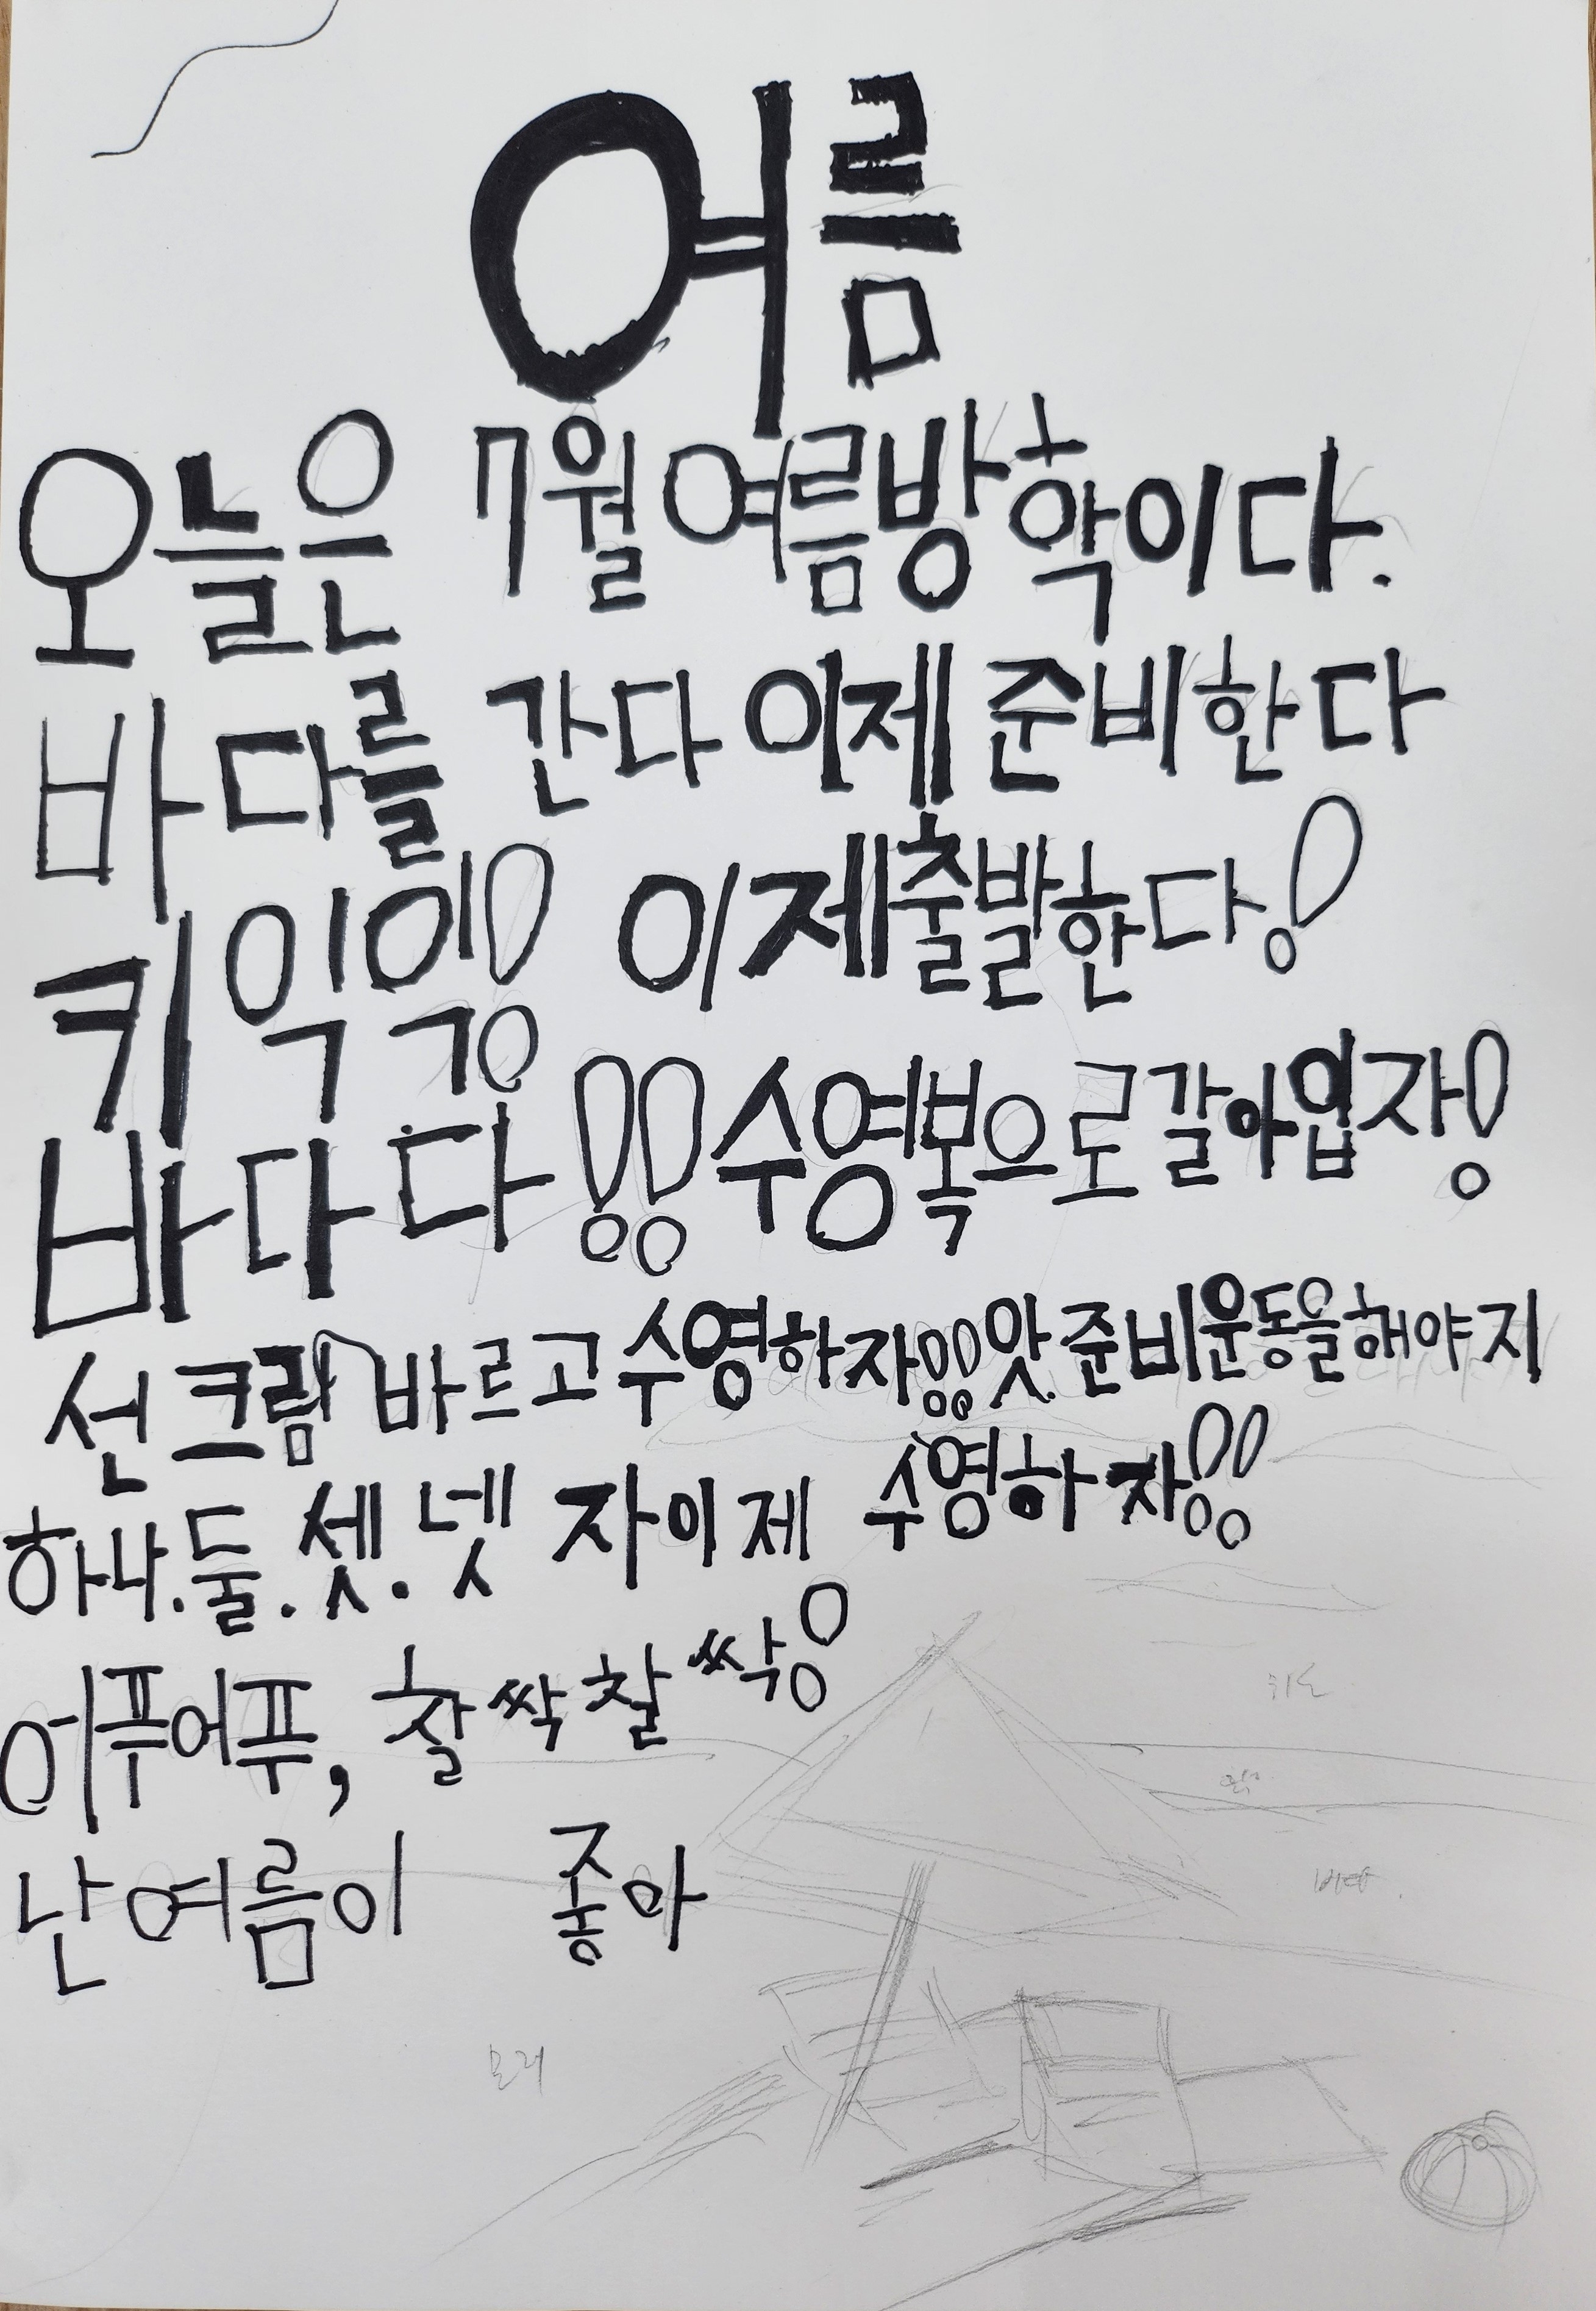 여름
오늘은 7월 여름방학이다.
바다를 간다 이제 준비한다
키익익! 이제출발한다!
바다다!! 수영복으로갈아입자!
선크림 바르고수영하자!! 앗. 준비운동을해야지
하나.둘.셋.넷 자이제 수영하자!!
어푸어푸, 찰싹찰싹!
난여름이 좋아
파도
바다
모래